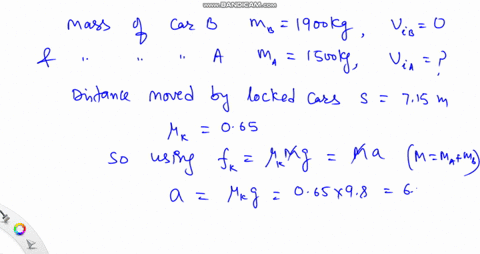 www.BANDICAM.com
Mass of Car B m_B = 1900kg, V_iB = 0
& " " " A m_A = 1500kg, V_iA = ?
Distance moved by locked cars s = 7.15 m
μ_k = 0.65
So using f_k = μ_k M g = M a (M = m_A + m_B)
a = μ_k g = 0.65 × 9.8 = 6.